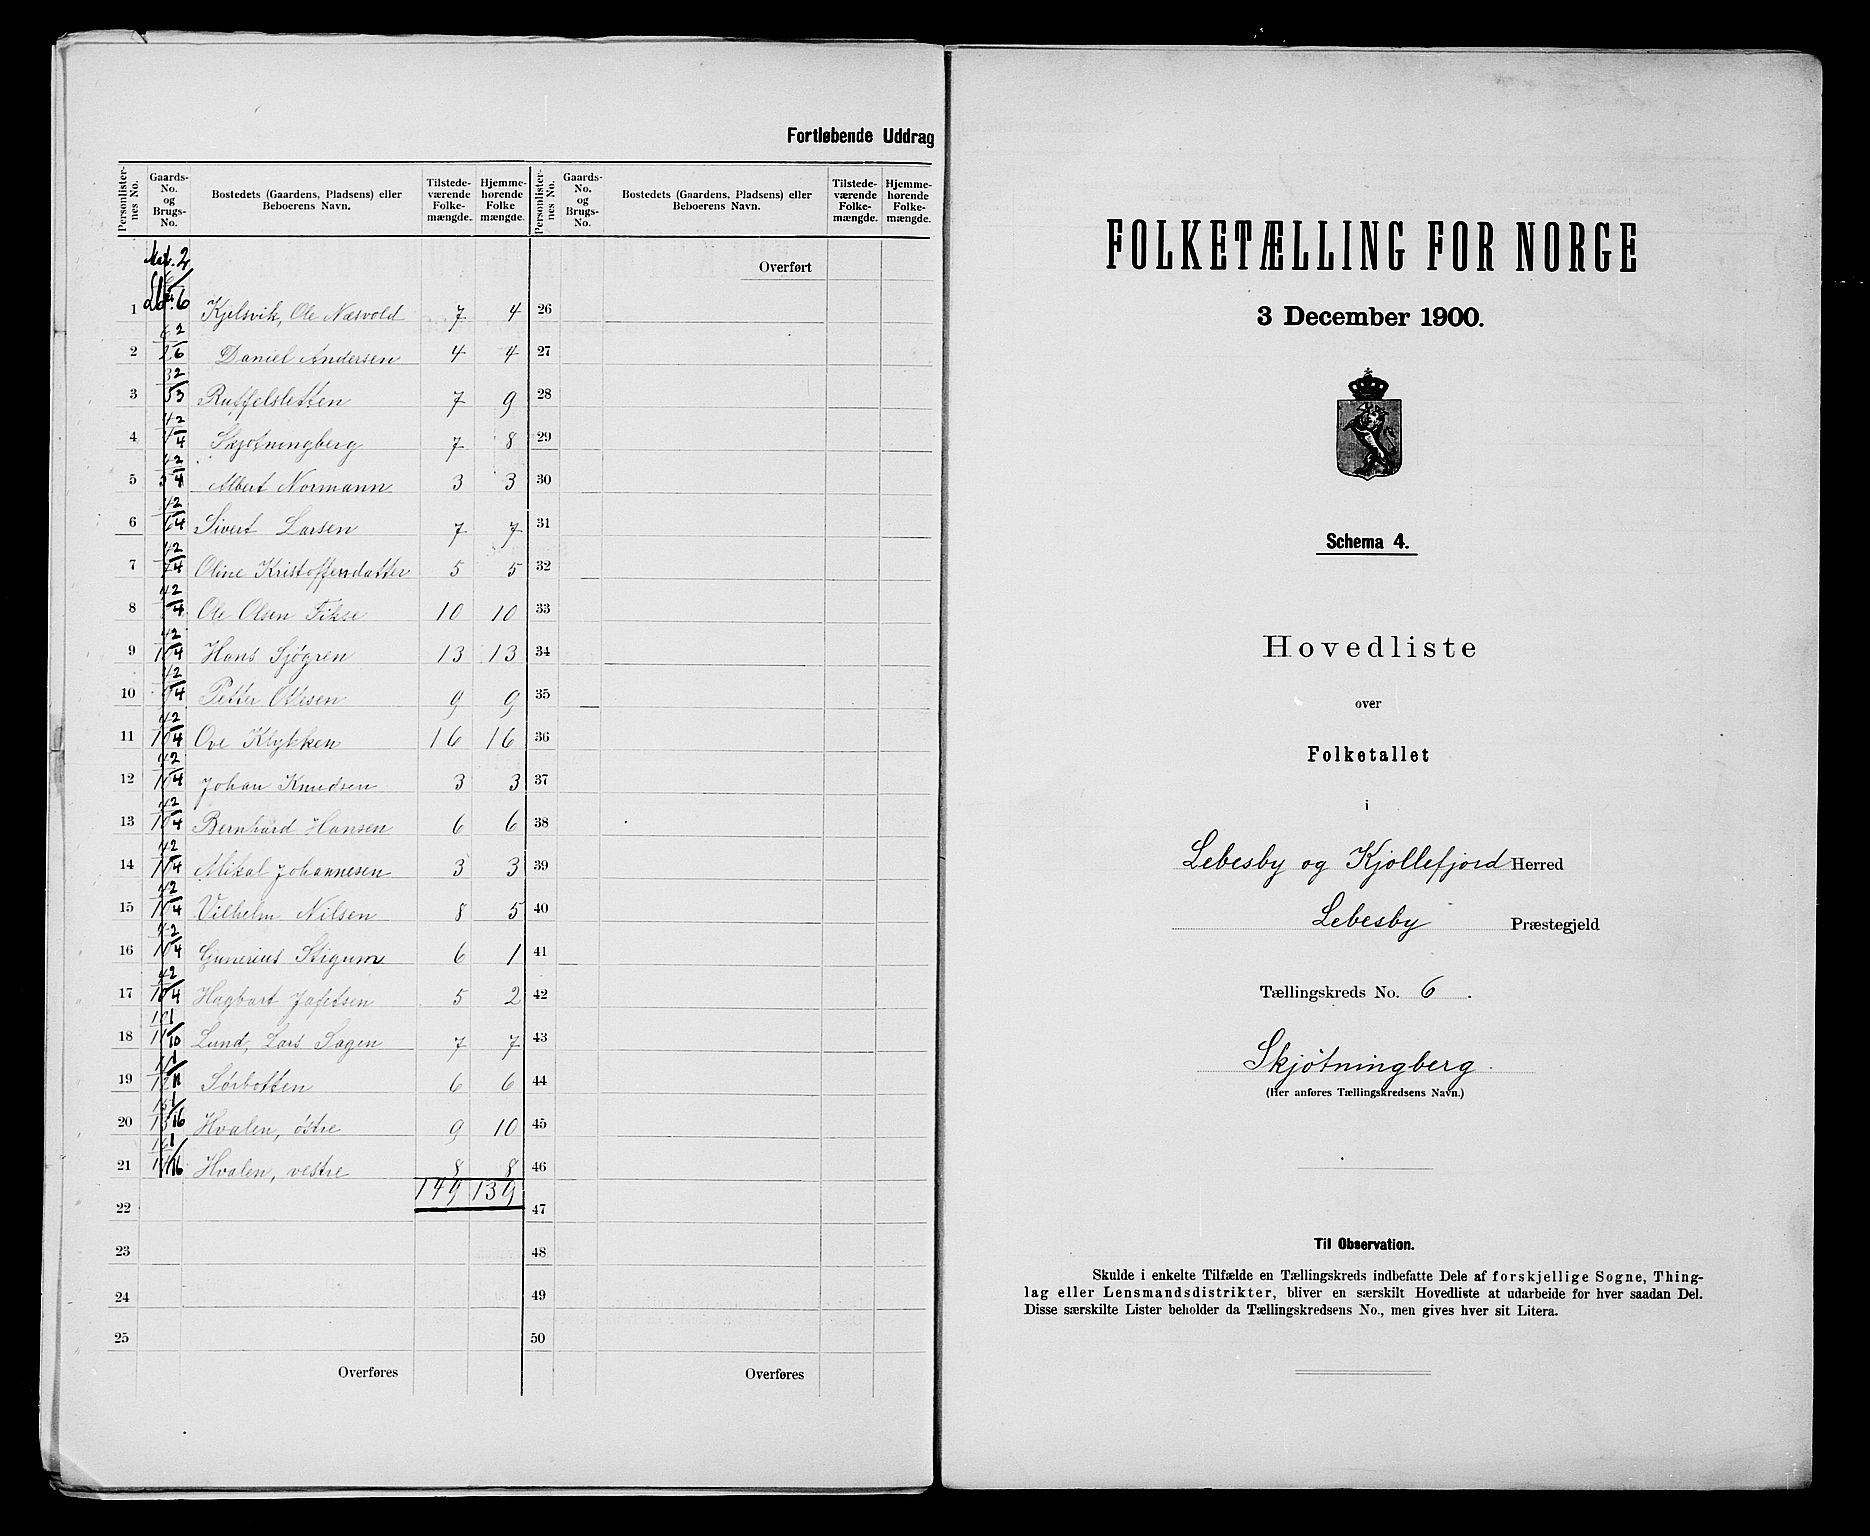 Fortløbende Uddrag
Personlisternes No.
Gaards-No. og Brugs-No.
Bostedets (Gaardens, Pladsens) eller Beboerens Navn.
Tilstedeværende Folkemængde.
Hjemmehørende Folkemængde.
Personlisternes No.
Gaards-No. og Brugs-No.
Bostedets (Gaardens, Pladsens) eller Beboerens Navn.
Tilstedeværende Folkemængde.
Hjemmehørende Folkemængde.
Overført
1 Kjelsvik, Ole Næsvold 7 4 26
2 Daniel Andersen 4 4 27
3 Ruffelsletten 7 9 28
4 Skjøtningberg 7 8 29
5 Albert Normann 3 3 30
6 Sivert Larsen 7 7 31
7 Oline Kristoffersdatter 5 5 32
8 Ole Olsen Fikse 10 10 33
9 Hans Sjøgren 13 13 34
10 Petter Ottesen 9 9 35
11 Ove Klykken 16 16 36
12 Johan Knudsen 3 3 37
13 Bernhard Hansen 6 6 38
14 Mikal Johannesen 3 3 39
15 Vilhelm Nilsen 8 5 40
16 Gunerius Stigum 6 1 41
17 Hagbart Jafetsen 5 2 42
18 Lund, Lars Sagen 7 7 43
19 Sørbotten 6 6 44
20 Hvalen, østre 9 10 45
21 Hvalen, vestre 8 8 46
149 139
22 47
23 48
24 49
25 50
Overføres Overføres
FOLKETÆLLING FOR NORGE
3 December 1900.
Schema 4.
Hovedliste
over
Folketallet
i
Lebesby og Kjøllefjord Herred
Lebesby Præstegjeld
Tællingskreds No. 6.
Skjøtningberg.
(Her anføres Tællingskredsens Navn.)
Til Observation.
Skulde i enkelte Tilfælde en Tællingskreds indbefatte Dele af forskjellige Sogne, Thing-
lag eller Lensmandsdistrikter, bliver en særskilt Hovedliste at udarbeide for hver saadan Del.
Disse særskilte Lister beholder da Tællingskredsens No., men gives hver sit Litera.